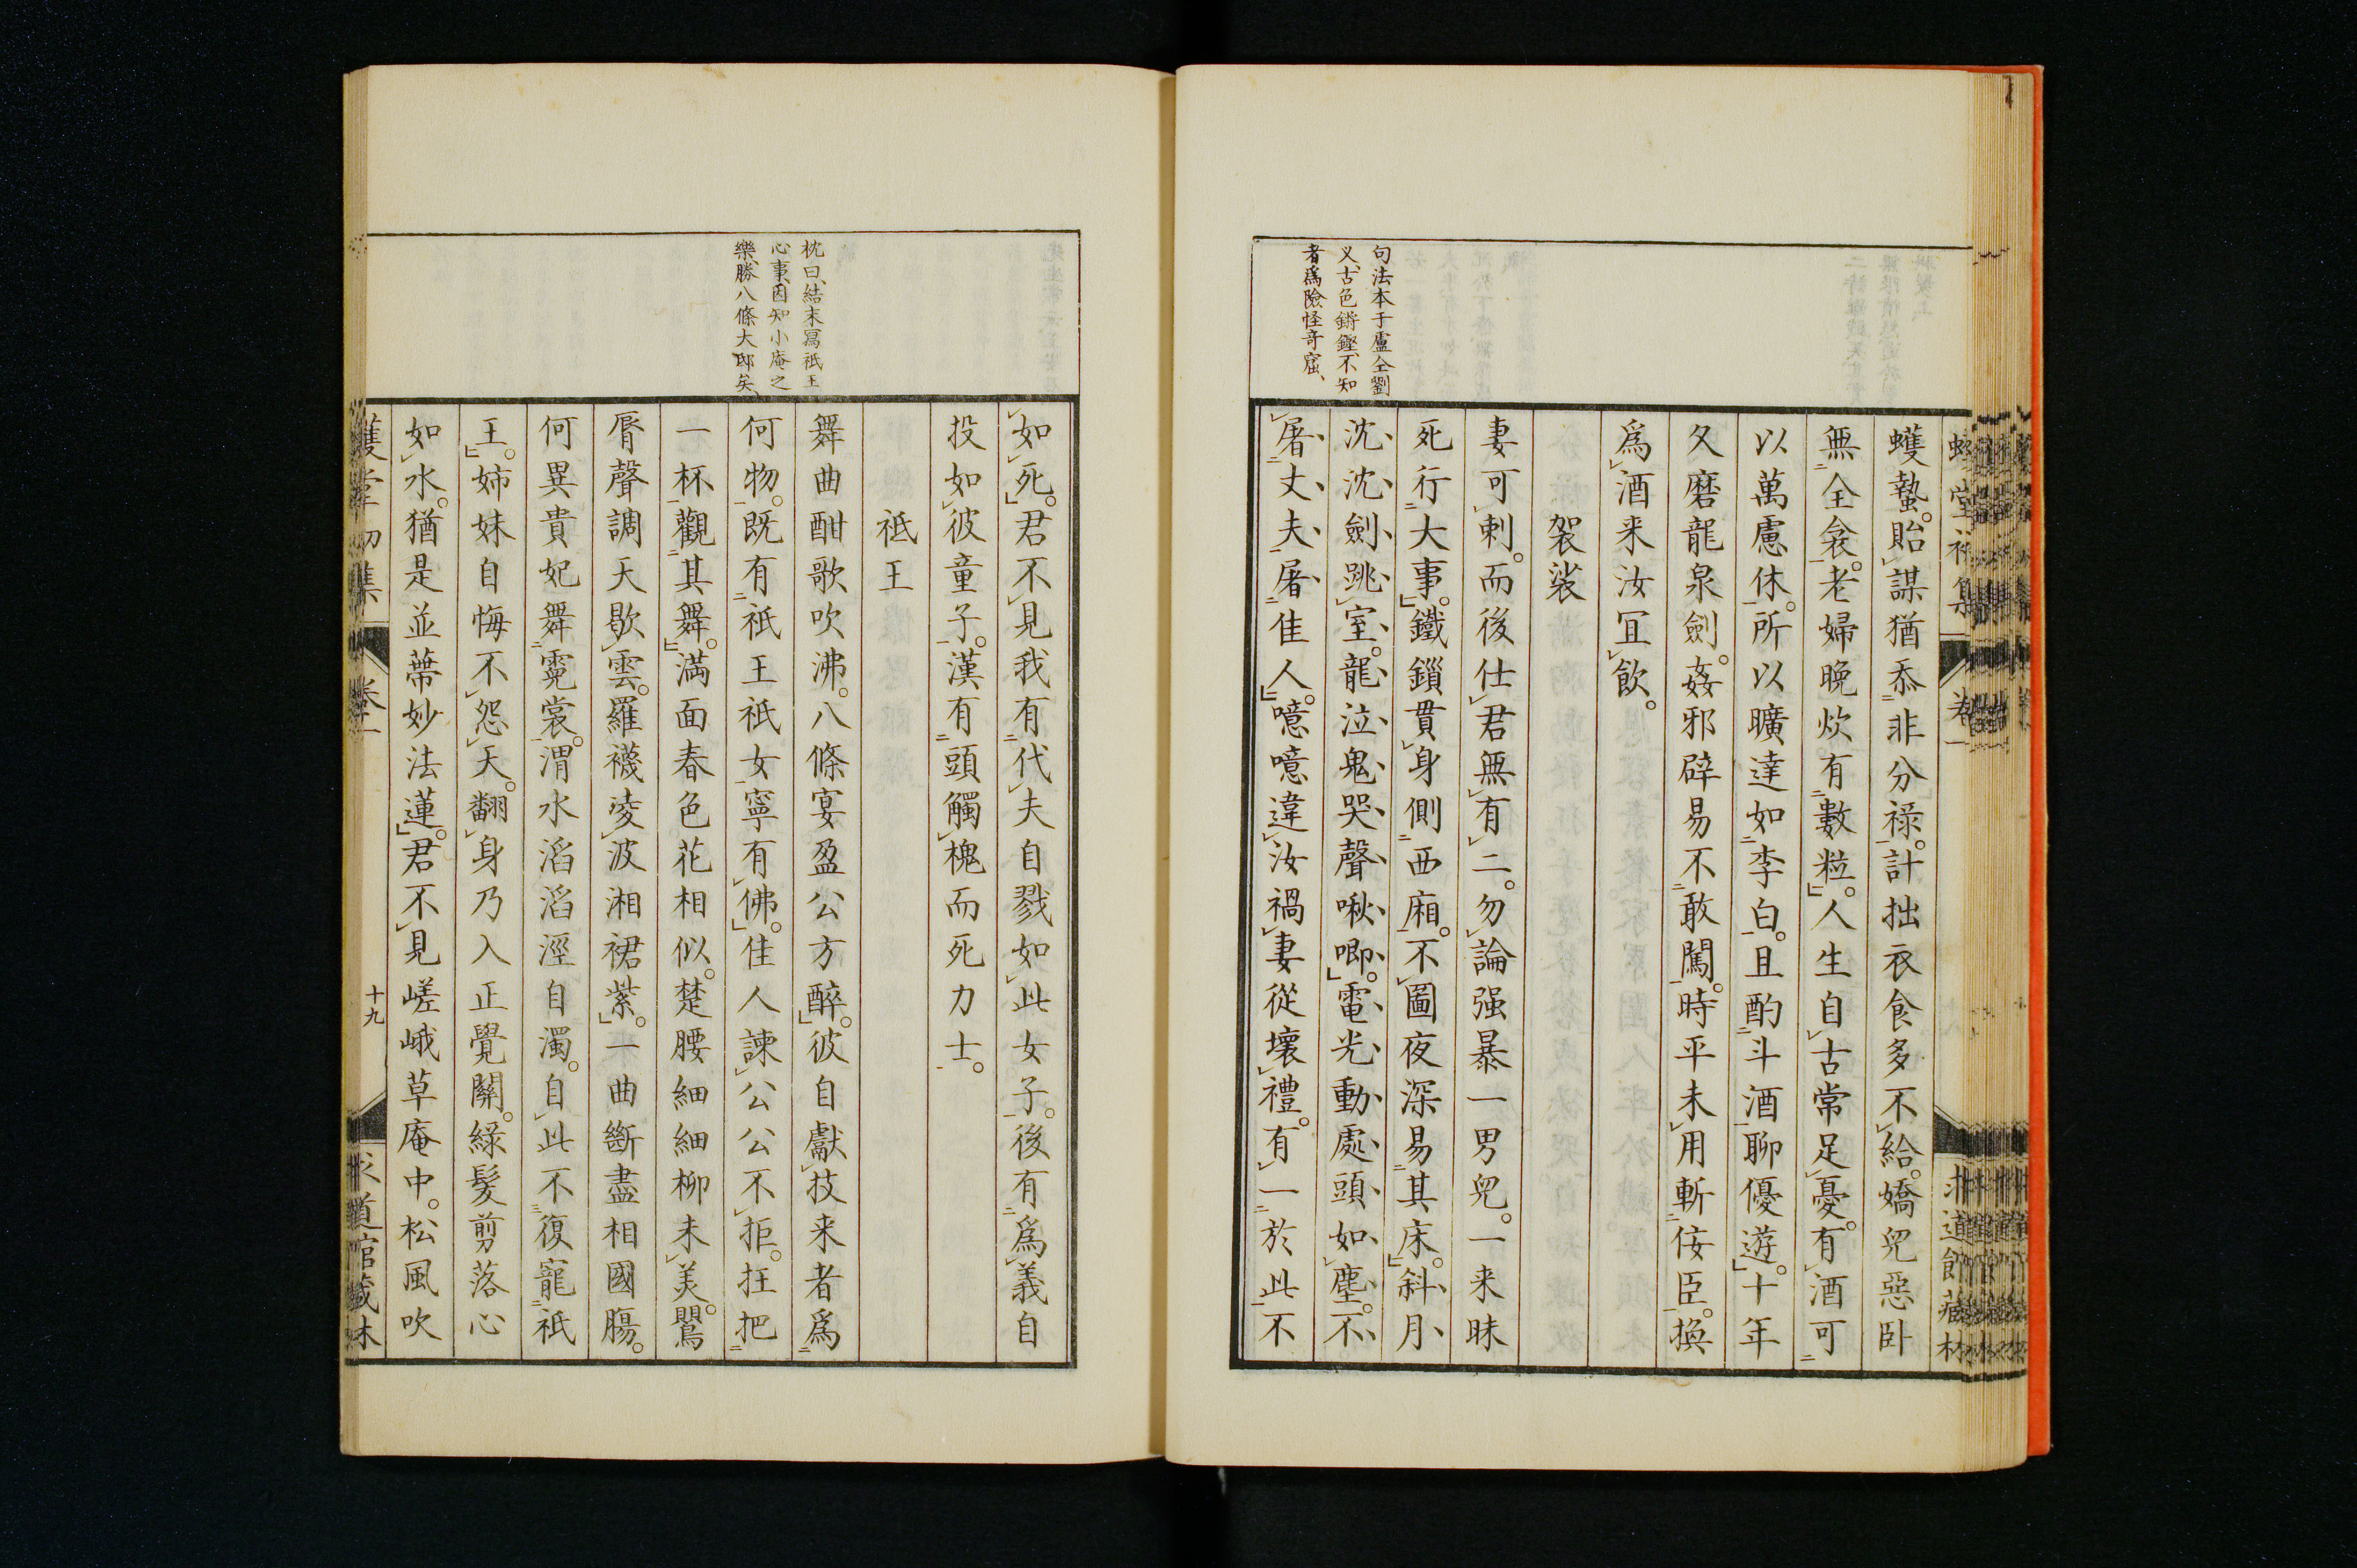 句法本于盧仝劉
叉、古色鏘鏗、不知
者爲險怪奇窟、
蠖蟄。貽謀猶忝非分祿。計拙衣食多不給。嬌兒惡臥
無全衾。老婦晚炊有數粒。人生自古常足憂。有酒可
以萬慮休。所以曠達如李白。且酌斗酒聊優遊。十年
久磨龍泉劍。姦邪辟易不敢闖。時平未用斬佞臣。換
爲酒来汝冝飲。
袈裟
妻可刺。而後仕君無有二。勿論强暴一男兒。一来昧
死行大事。鐵鎻貫身側西廂。不圖夜深易其床。斜月
沈沈劍跳室。龍泣鬼哭聲啾唧。電光動處頭如塵。不
屠丈夫屠佳人。噫噫違汝禍妻從壞禮。有一於此不
枕曰、結末冩祇王
心事、因知小庵之
樂、勝八條大邸矣、
如死。君不見我有代夫自戮如此女子。後有爲義自
投如彼童子。漢有頭觸槐而死力士。
祇王
舞曲酣歌吹沸。八條宴盈公方醉。彼自獻技来者爲
何物。既有祇王祇女寧有佛。佳人諫公公不拒。抂把
一杯觀其舞。満面春色花相似。楚腰細細柳未美。鸎
脣聲調天歇雲。羅襪凌波湘裙紫。一曲斷盡相國腸。
何異貴妃舞霓裳。渭水滔滔涇自濁。自此不復寵祇
王。姉妹自悔不怨天。翻身乃入正覺關。緑髮剪落心
如水。猶是並蔕妙法蓮。君不見嵯峨草庵中。松風吹
卷一
十九
求道館藏